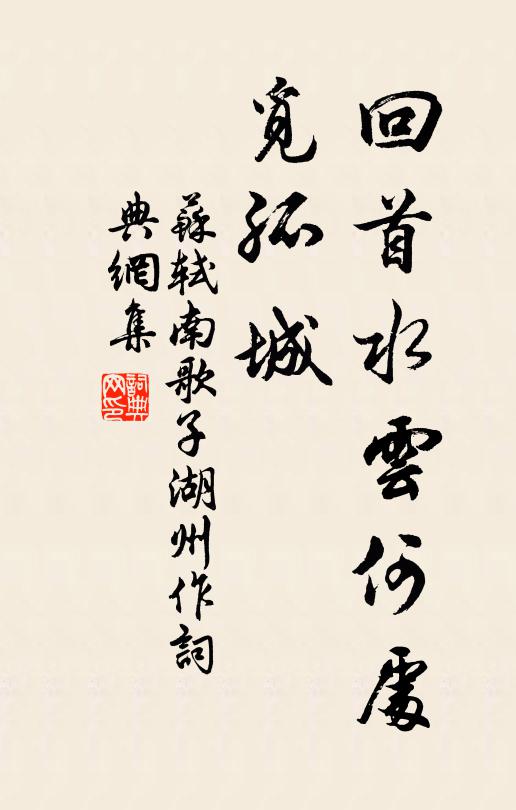 回首水雲何處
覓孤城
蘇軾南歌子湖州作詞
典網集
詞典網印